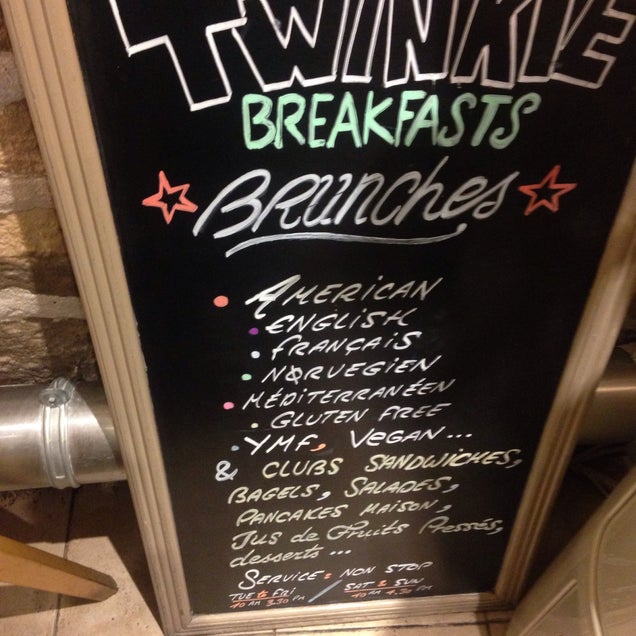 TWINKIE
BREAKFASTS
BRUNCHES
AMERICAN
ENGLISH
FRANÇAIS
NØRVEGIEN
MÉDITERRANÉEN
GLUTEN FREE
YMF, VEGAN...
& CLUBS SANDWICHES,
BAGELS, SALADES,
PANCAKES MAISON,
JUS de FRUITS PRESSÉS,
desserts...
SERVICE: NON STOP
TUE to FRI / SAT & SUN
10 AM 3.30 PM / 10 AM 4.30 PM